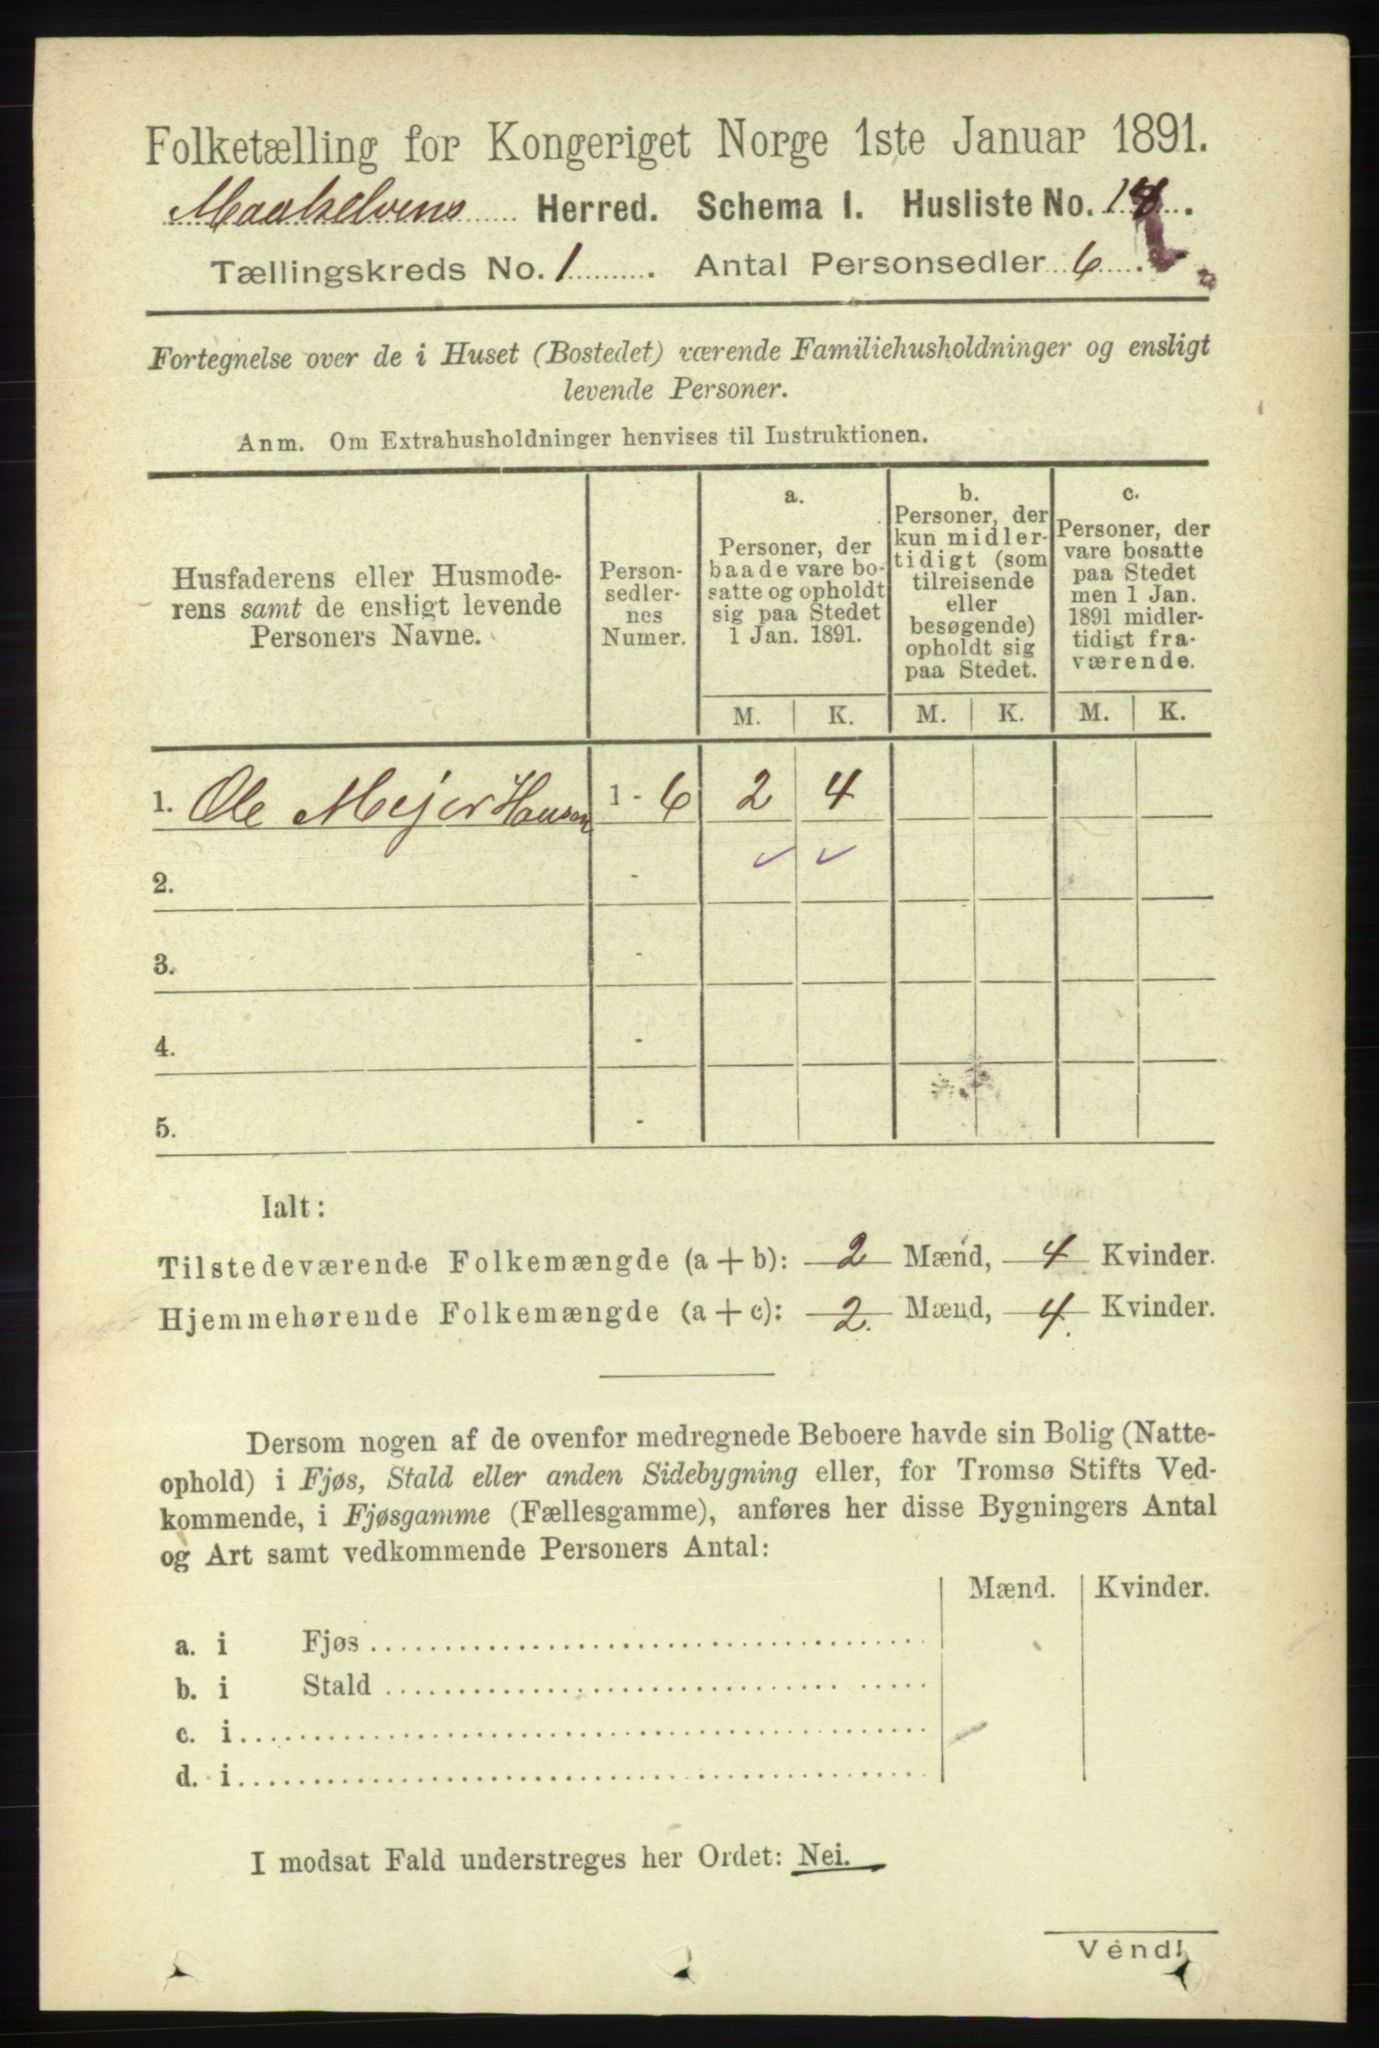 Folketælling for Kongeriget Norge 1ste Januar 1891.
Maalselvens Herred. Schema I. Husliste No. 18.
Tællingskreds No. 1. Antal Personsedler 6.
Fortegnelse over de i Huset (Bostedet) værende Familiehusholdninger og ensligt
levende Personer.
Anm. Om Extrahusholdninger henvises til Instruktionen.
Husfaderens eller Husmode-
rens samt de ensligt levende
Personers Navne.
Person-
sedler-
nes
Numer.
a.
Personer, der
baade vare bo-
satte og opholdt
sig paa Stedet
1 Jan. 1891.
b.
Personer, der
kun midler-
tidigt (som
tilreisende
eller
besøgende)
opholdt sig
paa Stedet.
c.
Personer, der
vare bosatte
paa Stedet
men 1 Jan.
1891 midler-
tidigt fra-
værende.
M. K. M. K. M. K.
1. Ole Mejer Hansen 1 - 6 2 4
2. -
3. -
4. -
5. -
Ialt:
Tilstedeværende Folkemængde (a + b): 2 Mænd, 4 Kvinder.
Hjemmehørende Folkemængde (a + c): 2. Mænd, 4. Kvinder.
Dersom nogen af de ovenfor medregnede Beboere havde sin Bolig (Natte-
ophold) i Fjøs, Stald eller anden Sidebygning eller, for Tromsø Stifts Ved-
kommende, i Fjøsgamme (Fællesgamme), anføres her disse Bygningers Antal
og Art samt vedkommende Personers Antal:
Mænd. Kvinder.
a. i Fjøs
b. i Stald
c. i
d. i
I modsat Fald understreges her Ordet: Nei.
Vend!